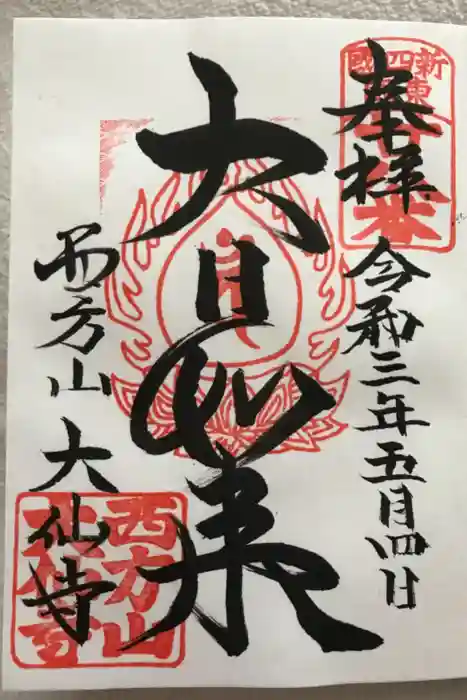 奉拝
令和三年五月四日
大日如来
西方山
大仙寺
西方山
大仙寺